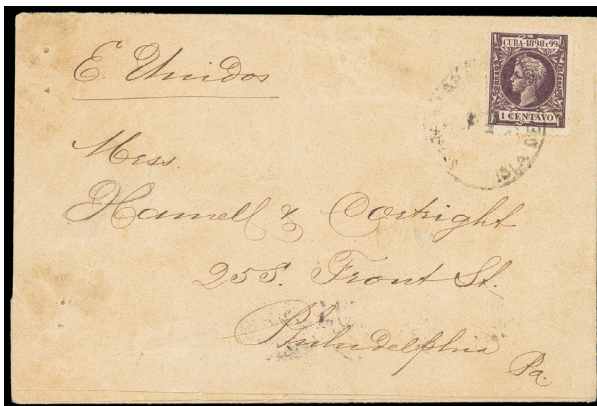 E. Unidos
CUBA 1898 Y 99
1 CENTAVO
ISLA DE
Mess.
Hamell & Cortright
25 S. Front St.
Philadelphia
Pa.